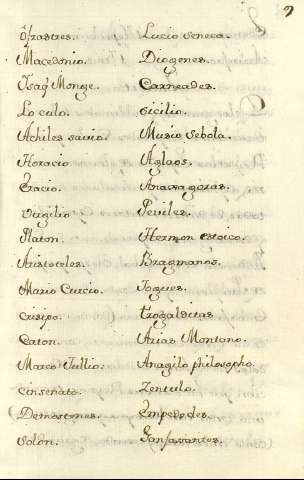 9
Ofrastres. Lucio seneca.
Macedonio. Diogenes.
Ysaq Monge. Carneades.
Loculo. Sicilio.
Achiles savio. Musio sebola.
Horacio Aglaos.
Eracio. Anaxagoras.
Virgilio Periles.
Platon. Hermon estoico.
Aristoteles. Bragmanos.
Mario Curcio. Jogues.
Crisipo. Trogalditas
Caton. Arias Montano.
Marco Tullio. Anagilo philosopho.
Cinsenato. Zentulo.
Demostenes. Empedodes.
Solon.